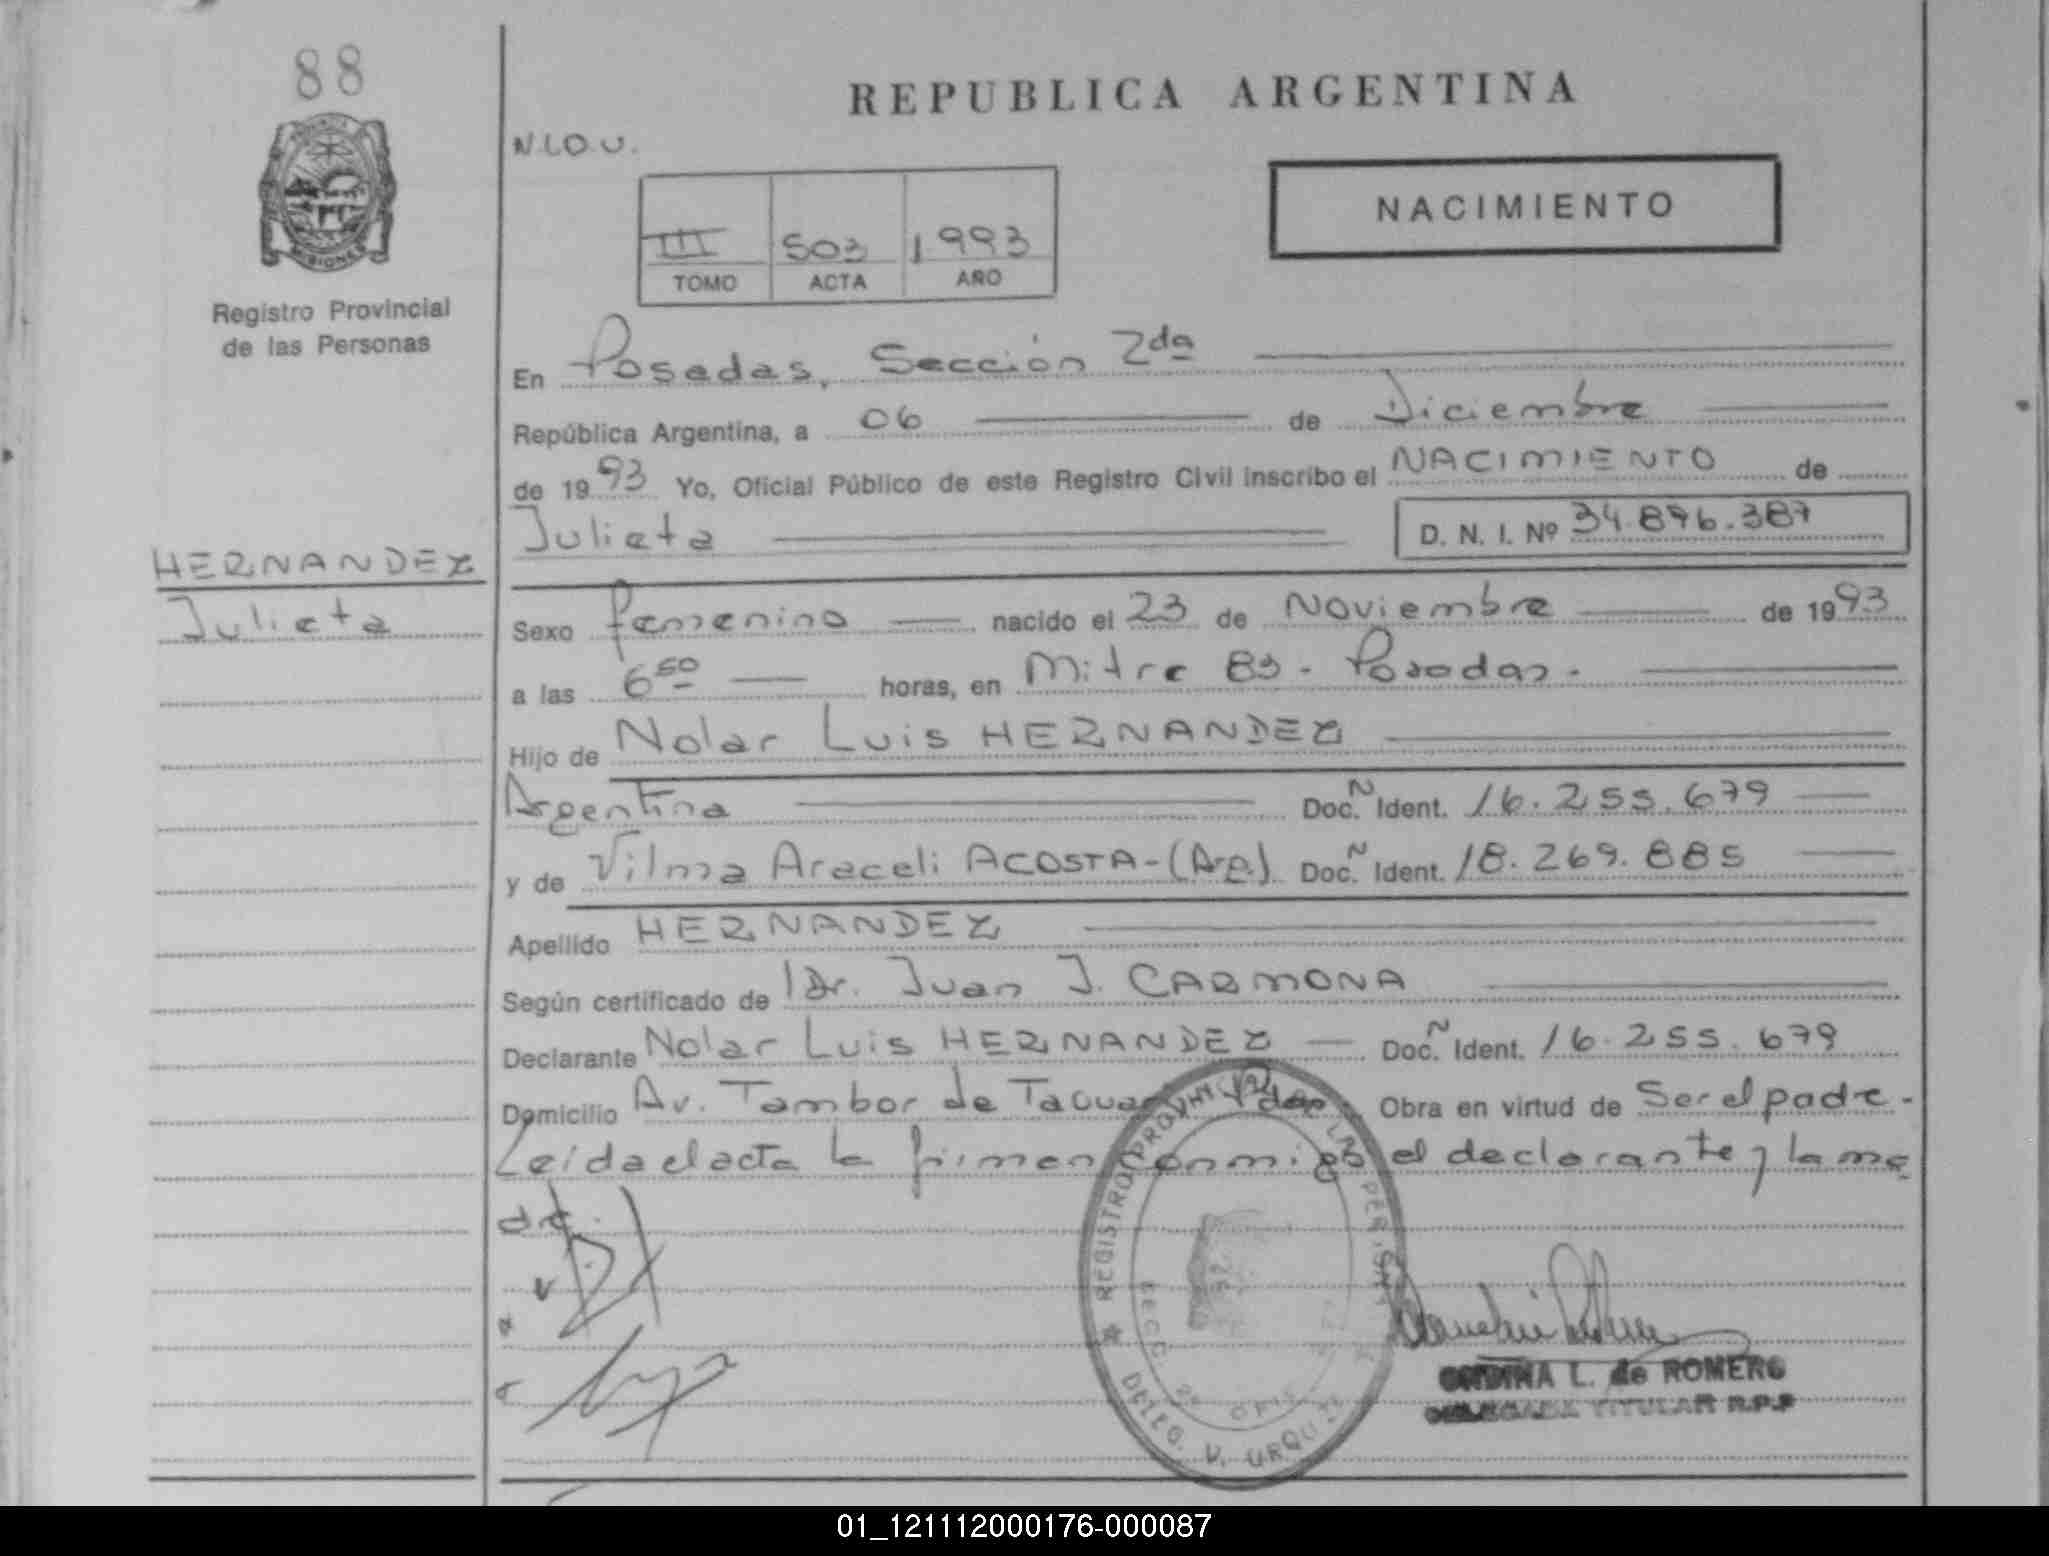 88
REPUBLICA ARGENTINA
N.I.O.U.
NACIMIENTO
III 503 1993
TOMO ACTA AÑO
PROVINCIA
MISIONES
Registro Provincial
de las Personas
En Posadas, Sección 2da
República Argentina, a 06 de Diciembre
de 1993 Yo, Oficial Público de este Registro Civil inscribo el NACIMIENTO de
Julieta D. N. I. Nº 34.896.387
HERNANDEZ
Julieta
Sexo femenino nacido el 23 de Noviembre de 1993
a las 6 50 horas, en Mitre 83 - Posadas.
Hijo de Nolar Luis HERNANDEZ
Argentina Doc. N Ident. 16.255.679
y de Vilma Araceli ACOSTA-(Arg.) Doc. N Ident. 18.269.885
Apellido HERNANDEZ
Según certificado de Dr. Juan J. CARMONA
Declarante Nolar Luis HERNANDEZ Doc. N Ident. 16.255.679
Domicilio Av. Tambor de Obra en virtud de Ser el padre.
Leída el acta la firman conmigo el declarante y la ma
dre.
REGISTRO PROVINCIAL DE LAS PERSONAS
DELEG. V. URQUIZA
SECC. 2a
ONDINA L. de ROMERO
DELEGADA TITULAR R.P.P
01_121112000176-000087